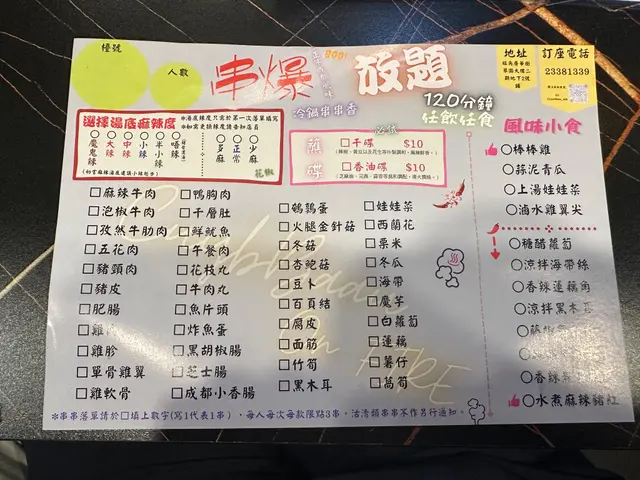 檯號
人數
串爆
冷鍋串串香
放題
120分鐘
任飲任食
地址
訂座電話
23381339
選擇湯底麻辣度
魔鬼辣
大辣
中辣
小辣
半小辣
唔辣
多麻
正常
少麻
花椒
蘸碟
必試
□干碟 $10
□香油碟 $10
風味小食
○棒棒雞
○蒜泥青瓜
○上湯娃娃菜
○滷水雞翼尖
○糖醋蘿蔔
○涼拌海帶絲
○香辣蓮藕角
○涼拌黑木耳
○水煮麻辣豬紅
□麻辣牛肉
□泡椒牛肉
□孜然牛肋肉
□五花肉
□豬頸肉
□豬皮
□肥腸
□雞胗
□單骨雞翼
□雞軟骨
□鴨胸肉
□千層肚
□鮮魷魚
□午餐肉
□花枝丸
□牛肉丸
□魚片頭
□炸魚蛋
□黑胡椒腸
□芝士腸
□成都小香腸
□鵪鶉蛋
□火腿金針菇
□冬菇
□杏鮑菇
□豆卜
□百頁結
□腐皮
□面筋
□竹筍
□黑木耳
□娃娃菜
□西蘭花
□粟米
□冬瓜
□海帶
□魔芋
□白蘿蔔
□蓮藕
□薯仔
□萵筍
*串串落單請於□填上數字(寫1代表1串)，每人每次每款限點3串，沽清頻串串不作另行通知。